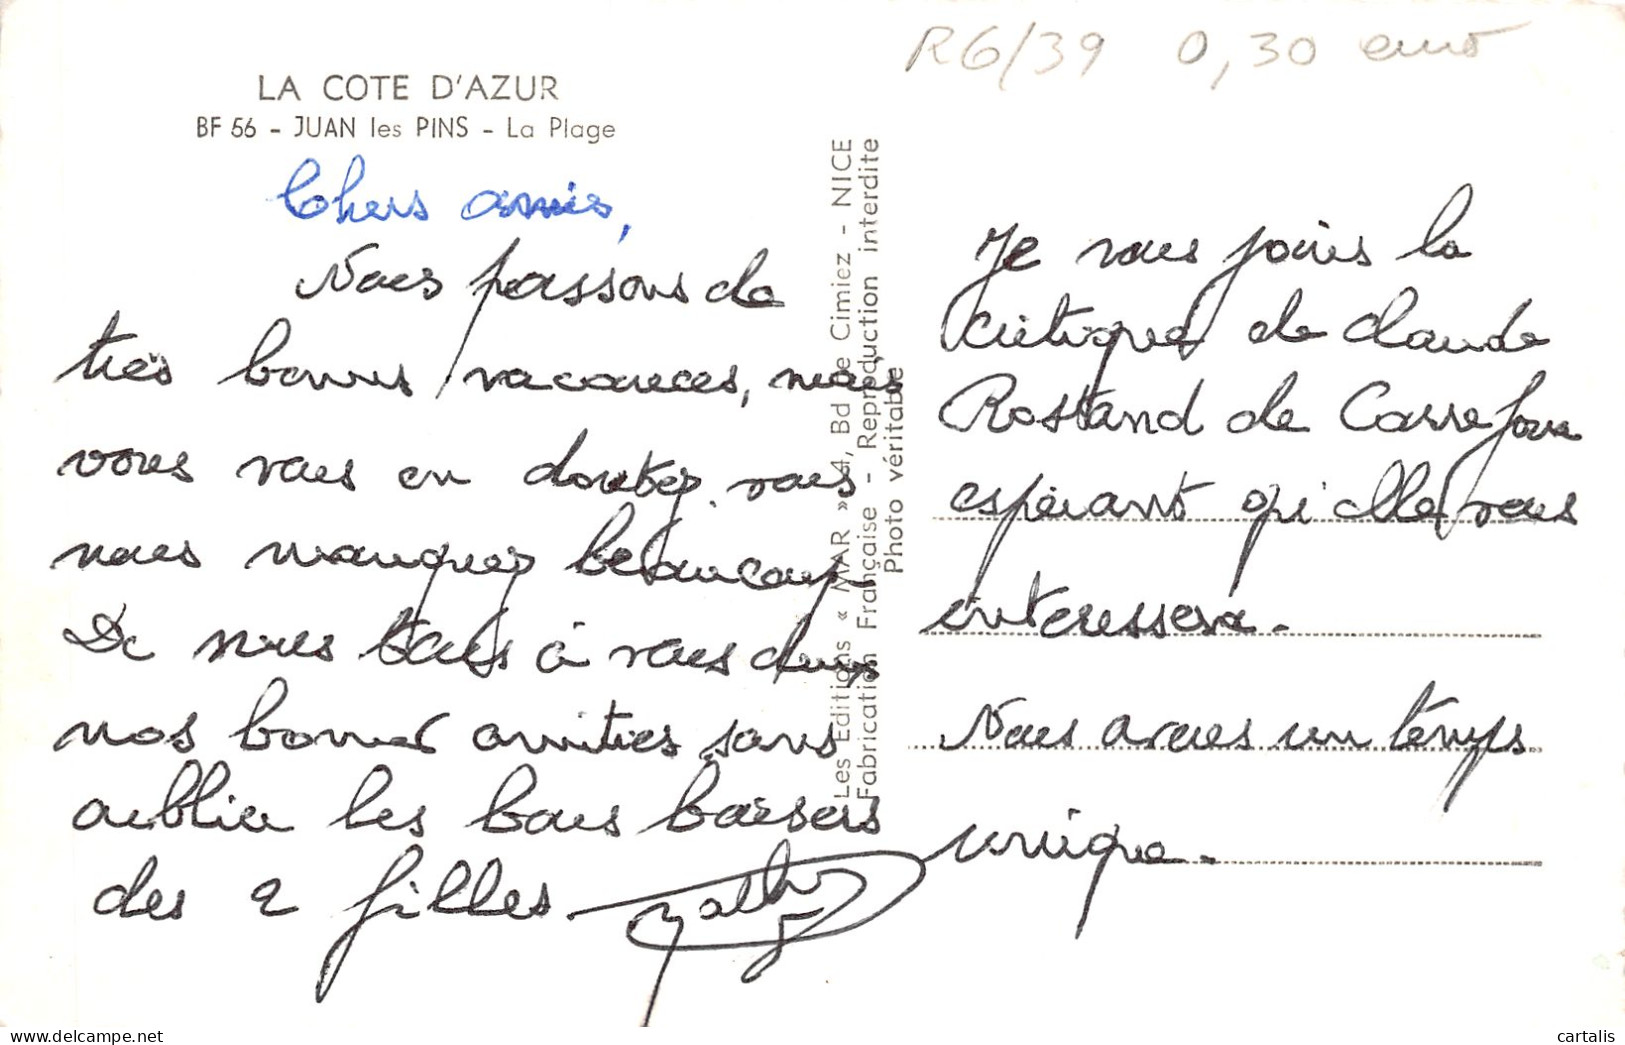 R6/39 0,30 euro
LA COTE D'AZUR
BF 56 - JUAN les PINS - La Plage
Chers amis,
Nous passons de
très bonnes vacances, mais
vous vous en doutez, vous
nous manquez beaucoup
De nous tous à vous deux
nos bonnes amitiés sans
oublier les bons baisers
des 2 filles.
Les Editions « MAR » 4, Bd de Cimiez - NICE
Fabrication Française - Reproduction interdite
Photo véritable
Je vous joins la
critique de Claude
Rostand de Carrefour
espérant qu'elle vous
intéressera.
Nous avons un temps
unique.
cartalis